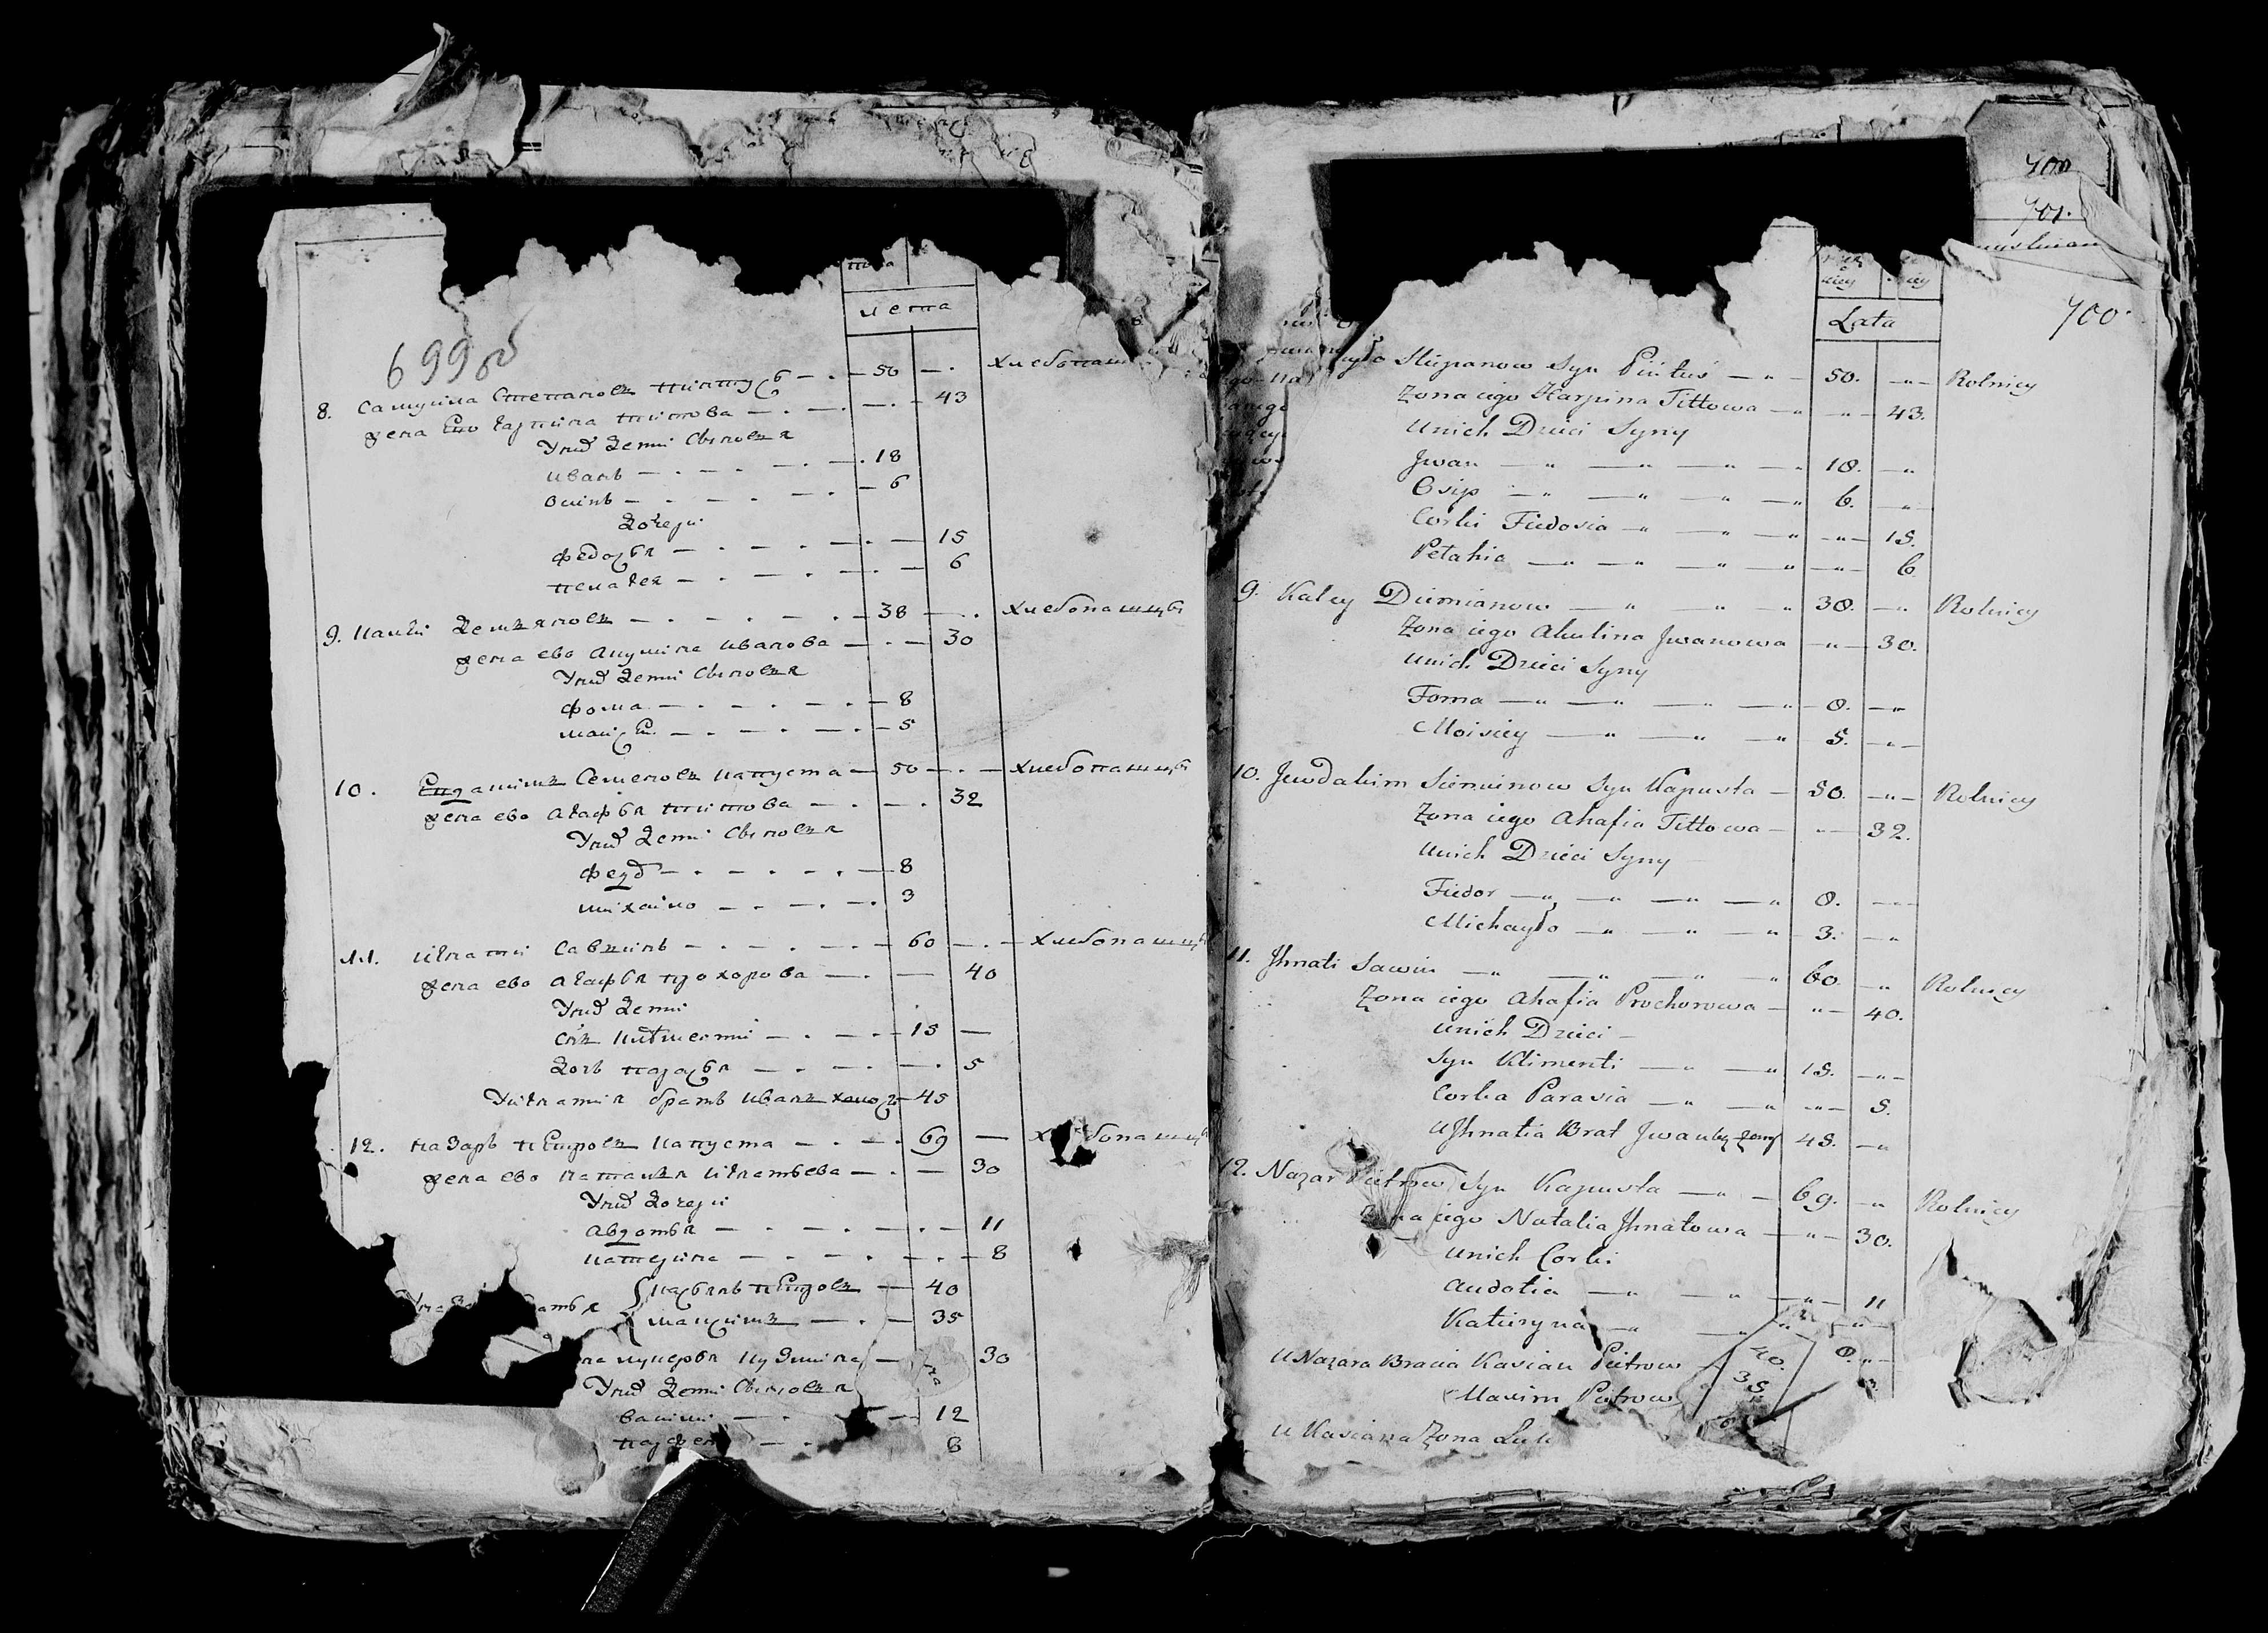 лета
699 об
8. Самуила Степановъ Пинтусъ 50 хлебопаш
жена Его Карпина титова 43
У них дети Сыновья
иванъ 18
осипъ 6
дочери
федосья 15
пелагея 6
9. Калей Демьяновъ 38 хлебопашцы
жена ево Акулина иванова 30
У них дети Сыновья
фома 8
моисей 5
10. Евдакимъ Семеновъ капуста 50 хлебопашцы
жена ево агафья титова 32
У них дети Сыновья
федор 8
михайло 3
11. игнатий Савинъ 60 хлебопашцы
жена ево агафья прохорова 40
У них дети
сынъ климентий 15
дочь парасья 5
У игнатия братъ иванъ холост 45
12. назаръ петровъ капуста 69 хлебопашцы
жена ево наталья игнатьева 30
У них дочери
авдотья 11
катерина 8
касьянъ петровъ 40
максимъ 35
лукерья кузмина 30
У них дети Сыновья
12
8
700
701.
Lata
700.
Stepanow Syn Pintuś 50. Rolnicy
Żona iego Karpina Tittowa 43.
U nich Dzieci Syny
Jwan 18.
Osip 6.
Corki Fiedosia 15.
Pelahia 6
9. Kaley Diemianow 38. Rolnicy
Żona iego Akulina Jwanowa 30.
U nich Dzieci Syny
Foma 8.
Moisiey 5.
10. Jewdakim Siemienow Syn Kapusta 50. Rolnicy
Żona iego Ahafia Tittowa 32.
U nich Dzieci Syny
Fiedor 8.
Michayło 3.
11. Jhnati Sawin 60. Rolnicy
Żona iego Ahafia Prochorowa 40.
U nich Dzieci
Syn Klimenti 15.
Corka Parasia 5.
U Jhnatia Brat Jwan bez żony 45.
12. Nazar Pietrow Syn Kapusta 69. Rolnicy
iego Natalia Jhnatowa 30.
U nich Corki
Audotia 11
Katieryna 8.
U Nazara Bracia Kasian Pietrow 40.
Maxim Pietrow 35
U Kasiana Żona